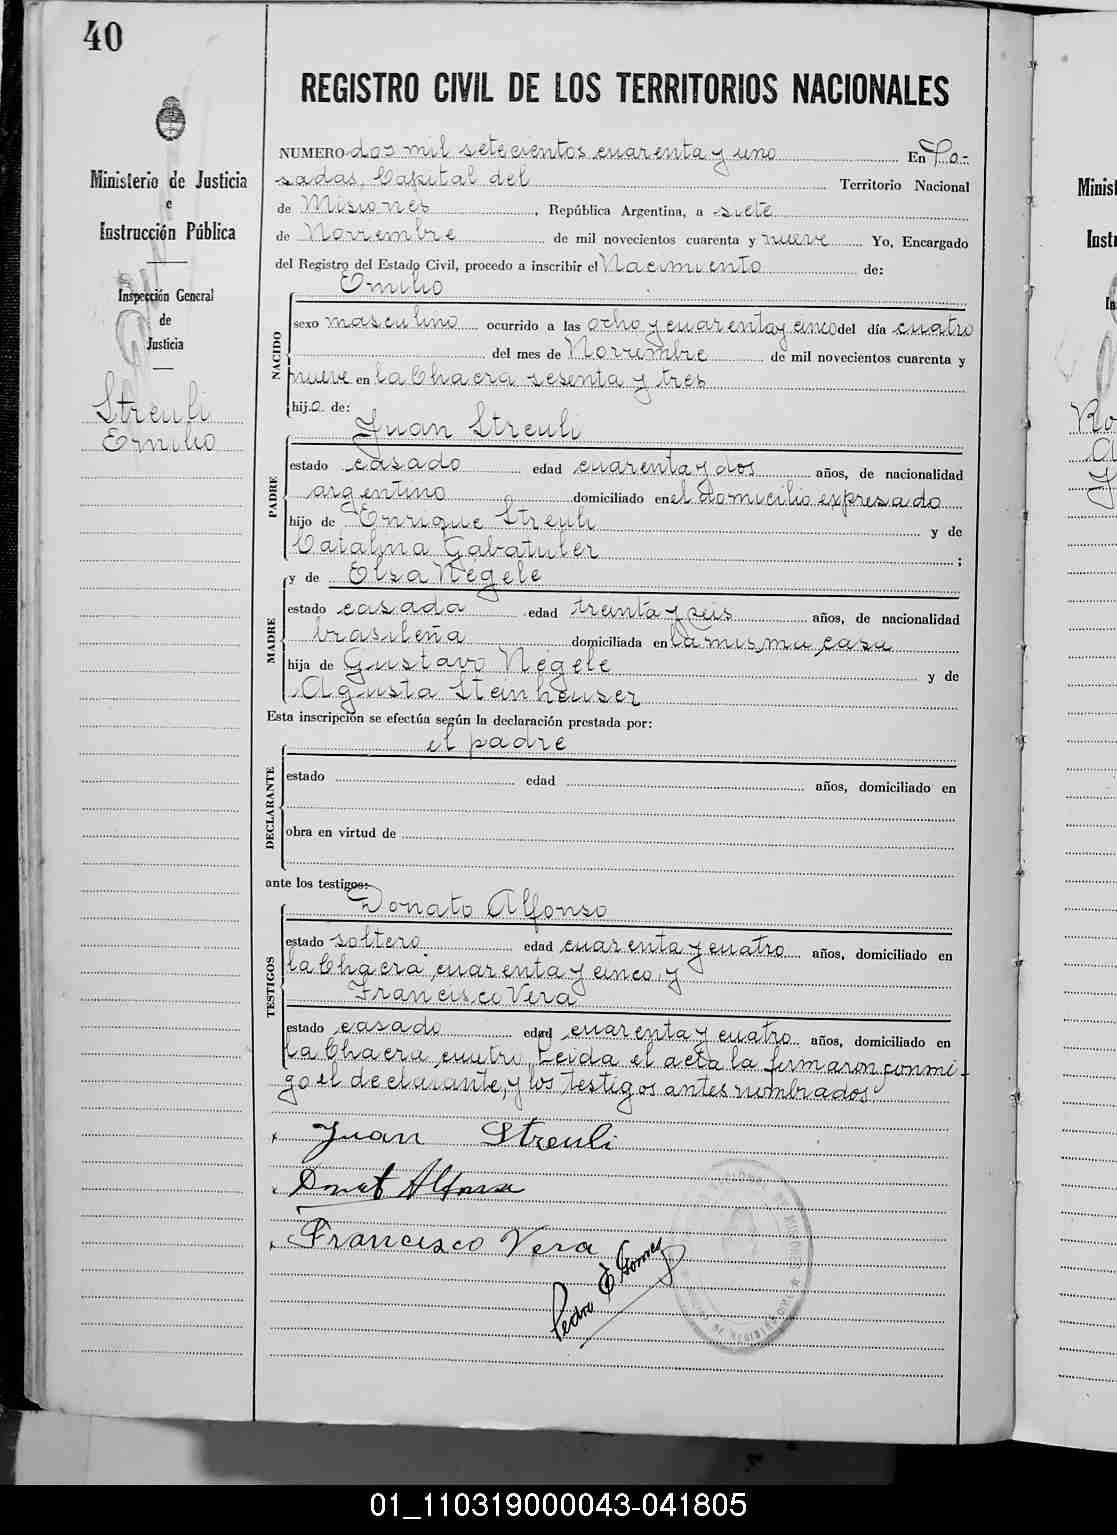 40
Ministerio de Justicia
e
Instrucción Pública
Inspección General
de
Justicia
Streuli
Emilio
REGISTRO CIVIL DE LOS TERRITORIOS NACIONALES
NUMERO dos mil setecientos cuarenta y uno En Po-
sadas, Capital del Territorio Nacional
de Misiones, República Argentina, a siete
de Noviembre de mil novecientos cuarenta y nueve Yo, Encargado
del Registro del Estado Civil, procedo a inscribir el Nacimiento de:
Emilio
NACIDO
sexo masculino ocurrido a las ocho y cuarenta y cinco del día cuatro
del mes de Noviembre de mil novecientos cuarenta y
nueve en la Chacra sesenta y tres
hijo de:
Juan Streuli
PADRE
estado casado edad cuarenta y dos años, de nacionalidad
argentino domiciliado en el domicilio expresado
hijo de Enrique Streuli y de
Catalina Gabatuler;
y de Elsa Négele
MADRE
estado casada edad treinta y seis años, de nacionalidad
brasileña domiciliada en la misma casa
hija de Gustavo Négele y de
Agusta Steinheuser
Esta inscripción se efectúa según la declaración prestada por:
el padre
DECLARANTE
estado edad años, domiciliado en
obra en virtud de
ante los testigos:
Donato Alfonso
TESTIGOS
estado soltero edad cuarenta y cuatro años, domiciliado en
la Chacra cuarenta y cinco y
Francisco Vera
estado casado edad cuarenta y cuatro años, domiciliado en
la Chacra cuatro. Leida el acta la firmaron conmi-
go el declarante, y los testigos antes nombrados
Juan Streuli
Donat Alfonso
Francisco Vera
Pedro E Gomez
Minist
Instru
In
01_110319000043-041805